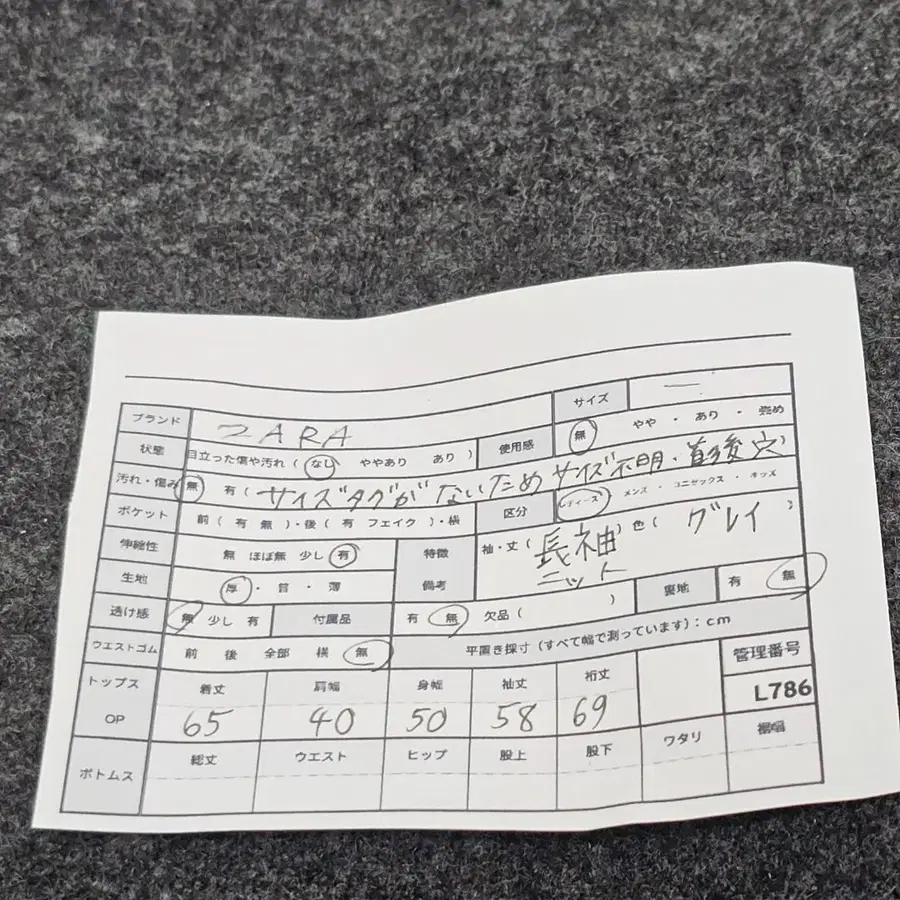 ブランド ZARA サイズ ー
状態 目立った傷や汚れ ( なし ややあり あり ) 使用感 無 やや ・ あり ・ 強め
汚れ・傷み 無 有 ( サイズタグがないためサイズ不明・首後穴 )
ポケット 前 ( 有 無 )・後 ( 有 フェイク )・横 区分 レディース メンズ ・ ユニセックス ・ キッズ
伸縮性 無 ほぼ無 少し 有 特徴 備考 袖・丈 ( 長袖 色 ( グレイ )
ニット
生地 厚 ・ 普 ・ 薄
透け感 無 少し 有 付属品 有 無 欠品 ( ) 裏地 有 無
ウエストゴム 前 後 全部 横 無 平置き採寸 (すべて幅で測っています) : cm
トップス 着丈 肩幅 身幅 袖丈 裄丈 管理番号
OP 65 40 50 58 69 L786
ボトムス 総丈 ウエスト ヒップ 股上 股下 ワタリ 裾幅